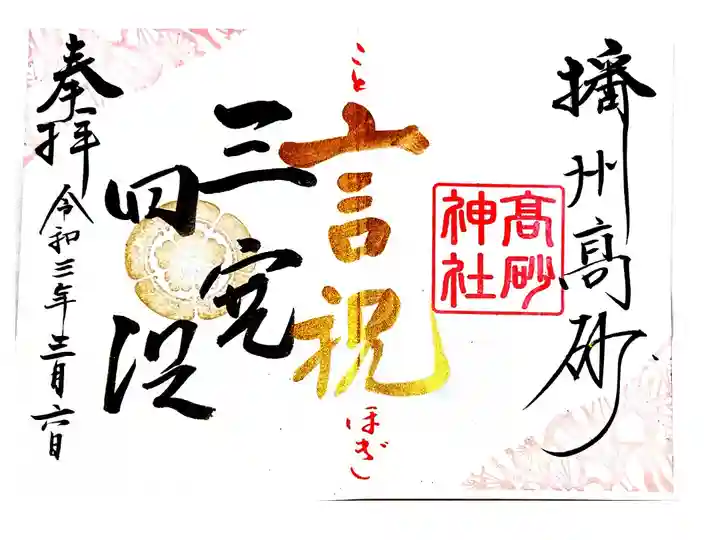 播州髙砂
髙砂
神社
こと
言祝
ほぎし
三寒
四温
奉拝
令和三年三月六日